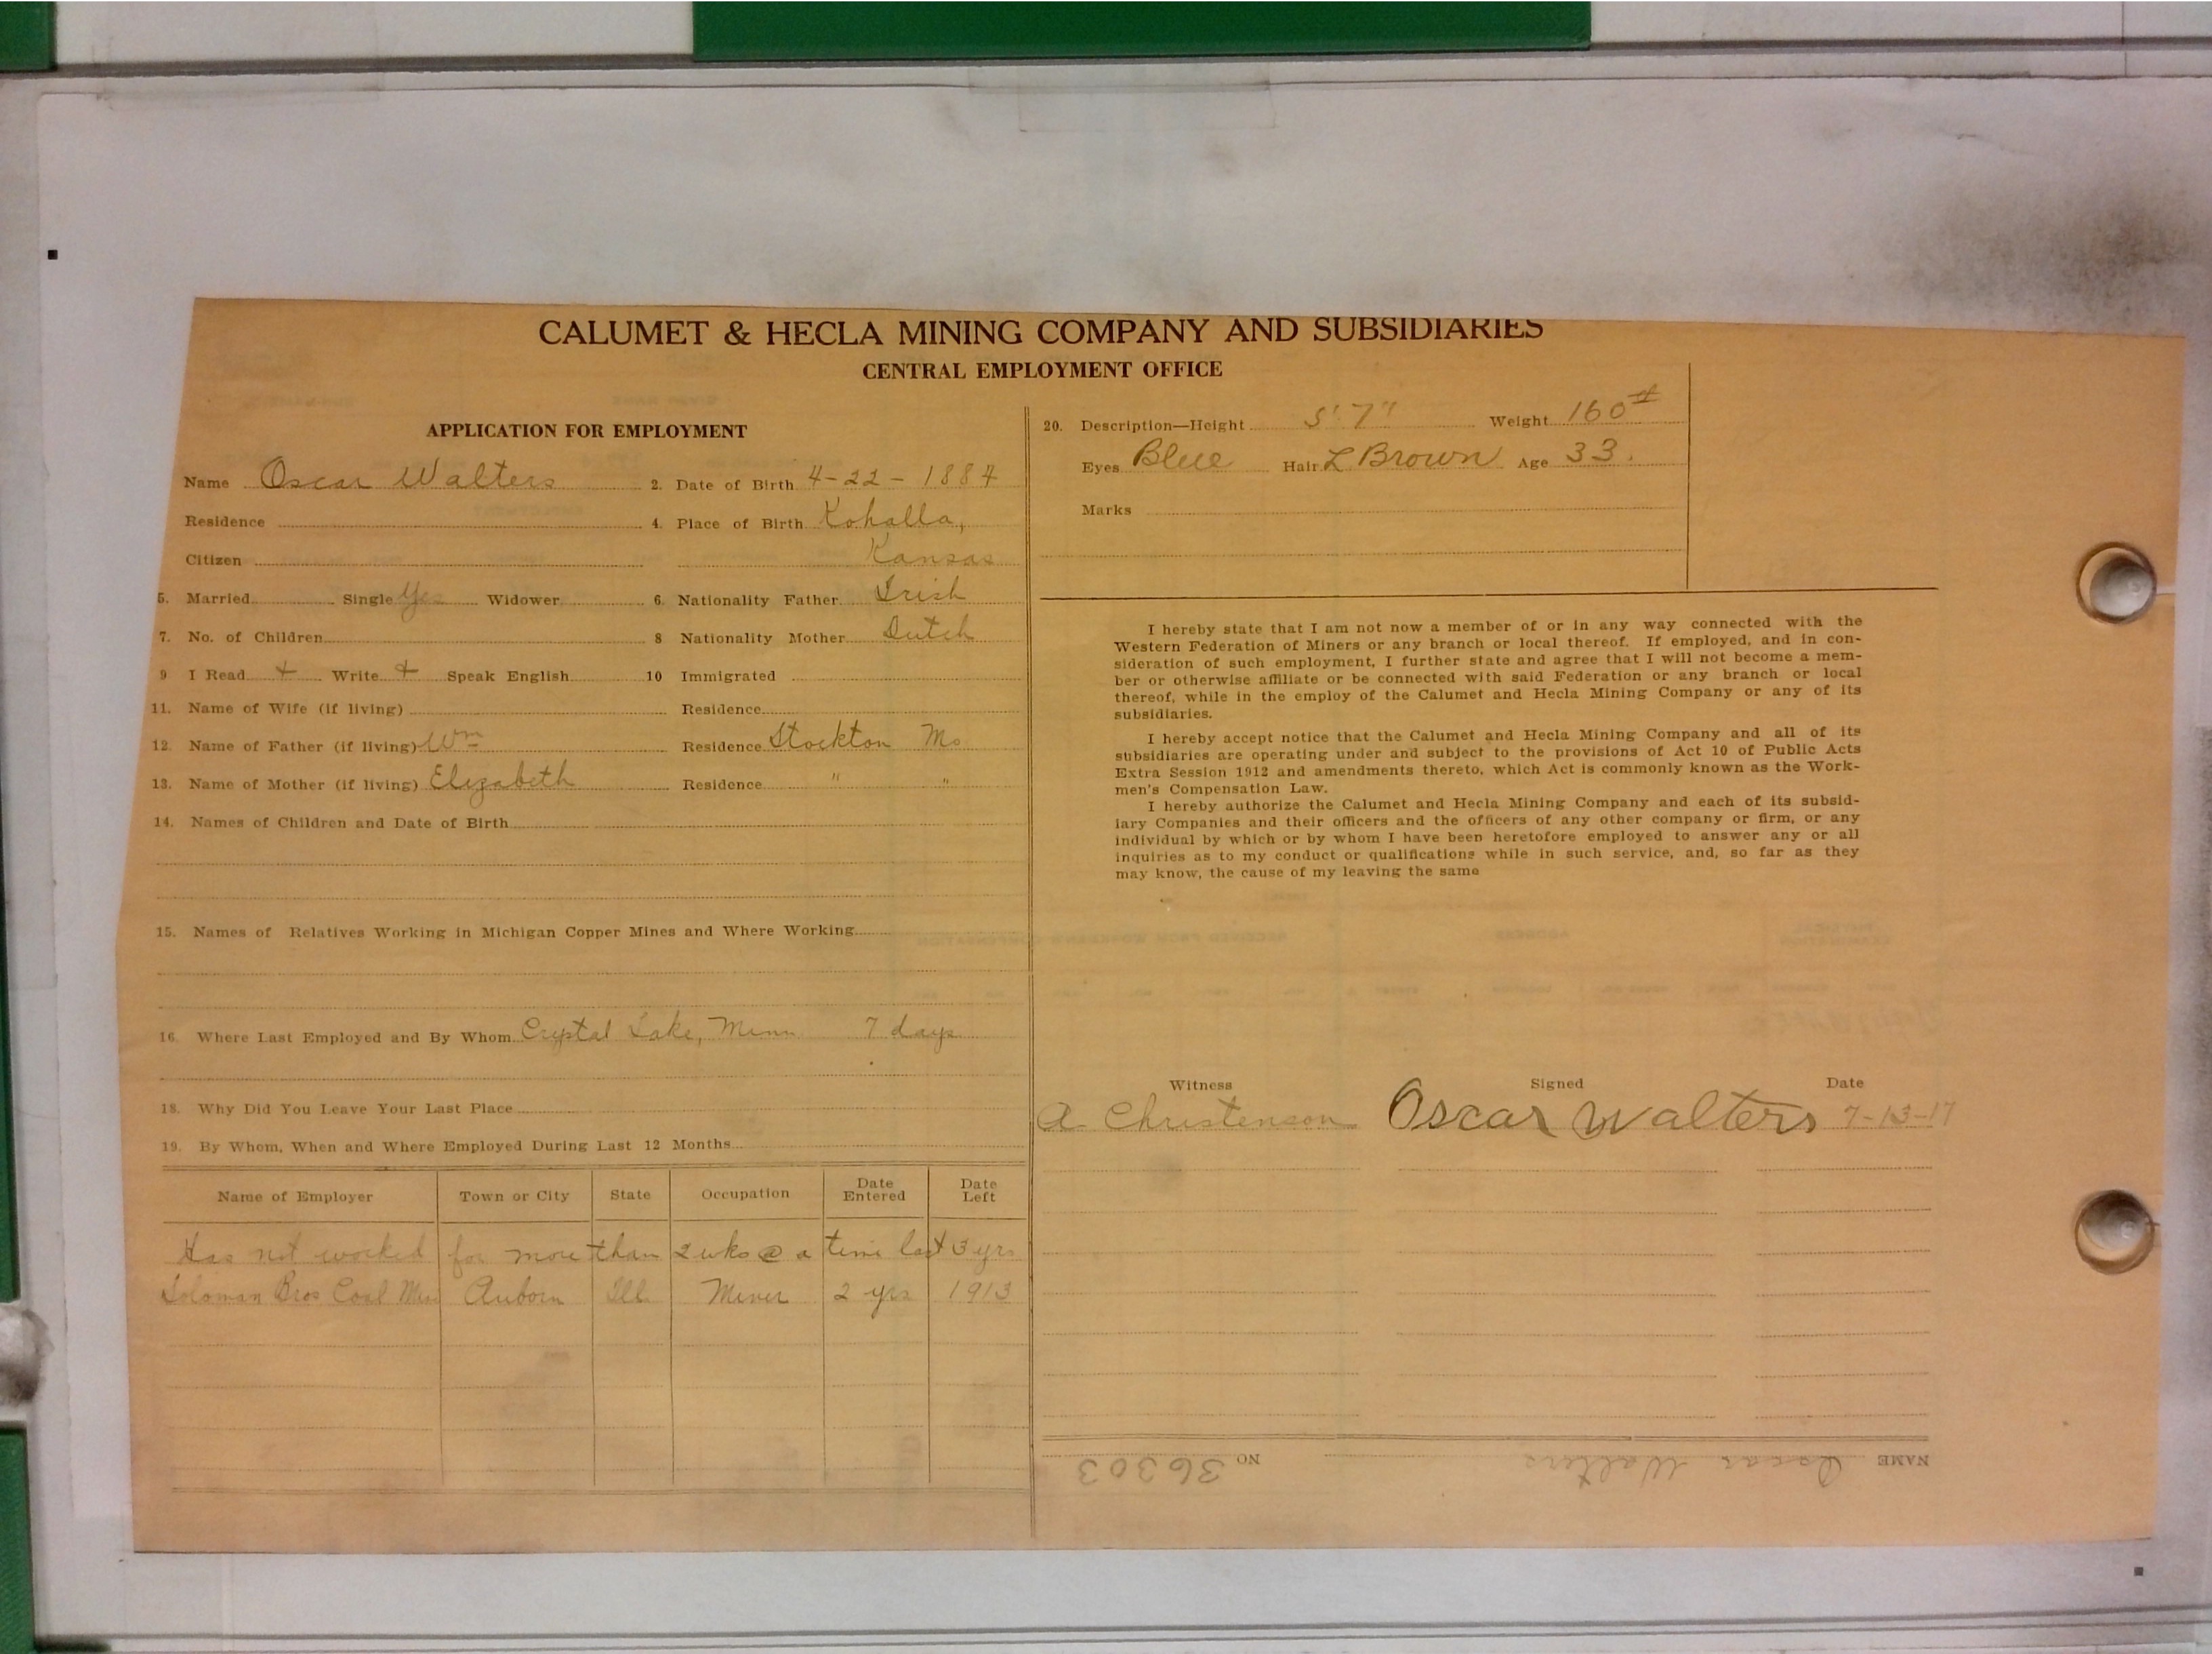 CALUMET & HECLA MINING COMPANY AND SUBSIDIARIES
CENTRAL EMPLOYMENT OFFICE
APPLICATION FOR EMPLOYMENT
Name Oscar Walters 2. Date of Birth 4-22-1884
Residence 4. Place of Birth Kohalla,
Citizen Kansas
5. Married Single Yes Widower 6. Nationality Father Irish
7. No. of Children 8 Nationality Mother Dutch
9 I Read + Write + Speak English 10 Immigrated
11. Name of Wife (if living) Residence
12. Name of Father (if living) Wm Residence Stockton Mo
13. Name of Mother (if living) Elizabeth Residence " "
14. Names of Children and Date of Birth
15. Names of Relatives Working in Michigan Copper Mines and Where Working
16. Where Last Employed and By Whom Crystal Lake, Minn 7 days
18. Why Did You Leave Your Last Place
19. By Whom, When and Where Employed During Last 12 Months
Name of Employer Town or City State Occupation Date Entered Date Left
Has not worked for more than 2 wks @ a time last 3 yrs
Soloman Bros Coal Auborn Ill. Miner 2 yrs 1913
20. Description—Height 5' 7" Weight 160#
Eyes Blue Hair L Brown Age 33.
Marks
I hereby state that I am not now a member of or in any way connected with the
Western Federation of Miners or any branch or local thereof. If employed, and in con-
sideration of such employment, I further state and agree that I will not become a mem-
ber or otherwise affiliate or be connected with said Federation or any branch or local
thereof, while in the employ of the Calumet and Hecla Mining Company or any of its
subsidiaries.
I hereby accept notice that the Calumet and Hecla Mining Company and all of its
subsidiaries are operating under and subject to the provisions of Act 10 of Public Acts
Extra Session 1912 and amendments thereto, which Act is commonly known as the Work-
men's Compensation Law.
I hereby authorize the Calumet and Hecla Mining Company and each of its subsid-
iary Companies and their officers and the officers of any other company or firm, or any
individual by which or by whom I have been heretofore employed to answer any or all
inquiries as to my conduct or qualifications while in such service, and, so far as they
may know, the cause of my leaving the same
Witness Signed Date
A. Christenson Oscar Walters 7-13-17
NAME Oscar Walters NO 36303